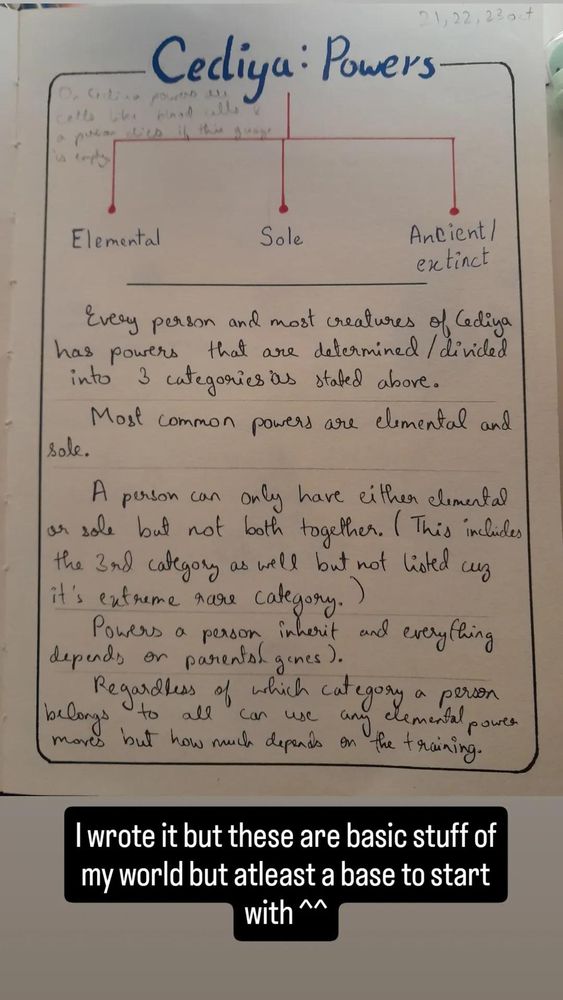 21, 22, 23 oct
Cediya: Powers
On Cediya powers are
cells like blood cells &
a person dies if this guage
is empty
Elemental
Sole
Ancient/
extinct
Every person and most creatures of Cediya
has powers that are determined/divided
into 3 categories as stated above.
Most common powers are elemental and
sole.
A person can only have either elemental
or sole but not both together. (This includes
the 3rd category as well but not listed cuz
it's extreme rare category.)
Powers a person inherit and everything
depends on parents (genes).
Regardless of which category a person
belongs to all can use any elemental power
moves but how much depends on the training.
I wrote it but these are basic stuff of
my world but atleast a base to start
with ^^